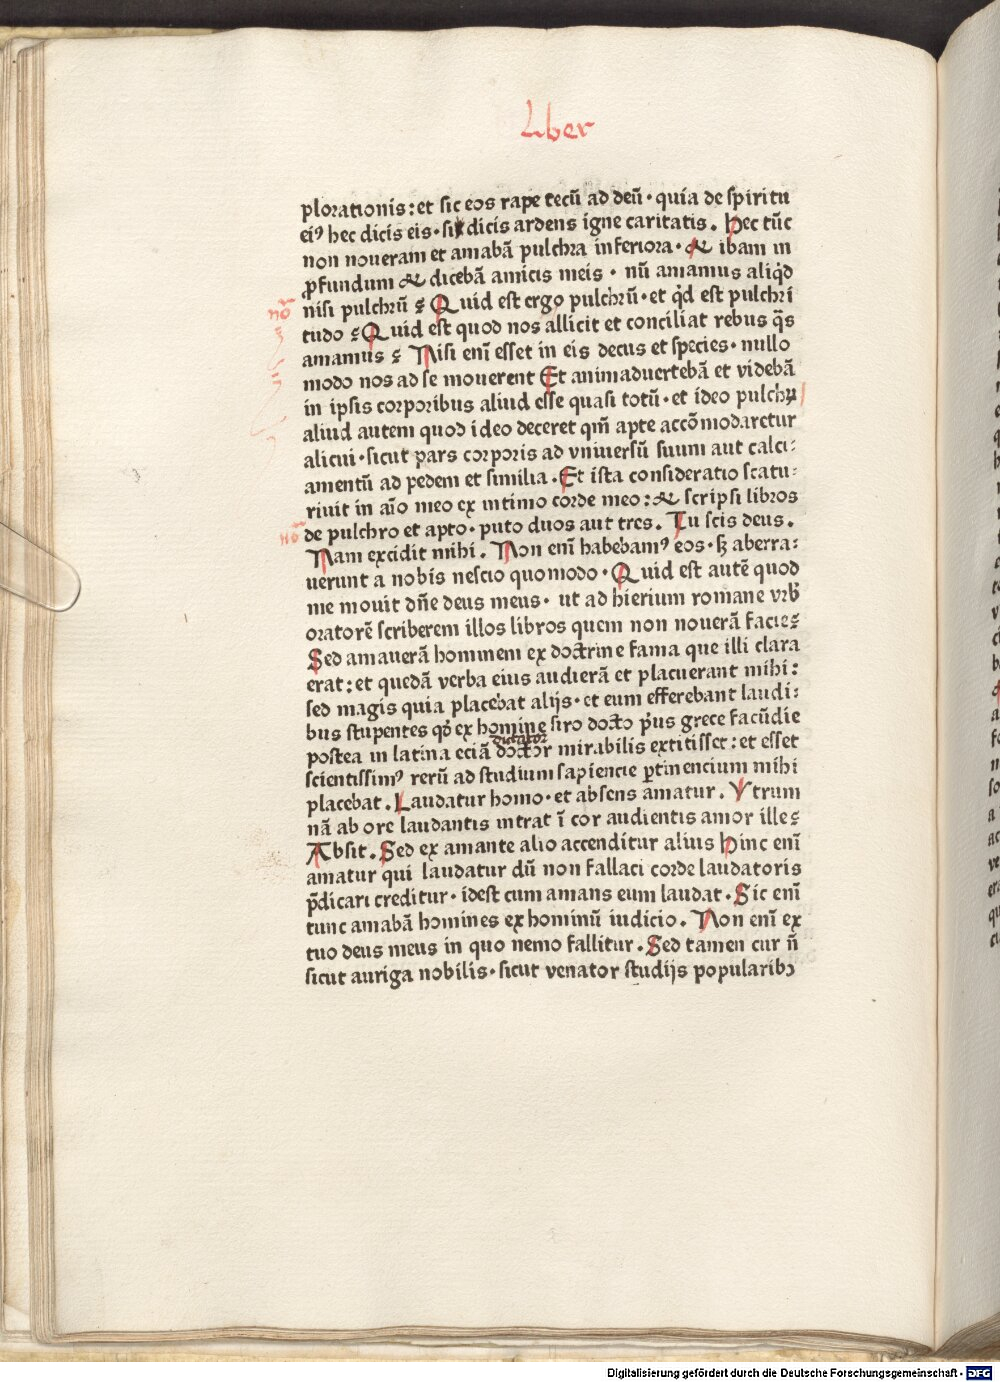 Liber
plorationis: et sic eos rape tecū ad deū· quia de spiritu
ei⁹ hec dicis eis· si dicis ardens igne caritatis. Hec tūc
non noueram et amabā pulchra inferiora· & ibam in
ꝓfundum & dicebā amicis meis· nū amamus aliqͥd
nisi pulchrū ? Quid est ergo pulchrū· et qͥd est pulchri
tudo ? Quid est quod nos allicit et conciliat rebus q̄s
amamus ? Nisi enī esset in eis decus et species· nullo
modo nos ad se mouerent Et animaduertebā et videbā
in ipsis corporibus aliud esse quasi totū· et ideo pulchꝝ
aliud autem quod ideo deceret qm̄ apte accōmodaretur
alicui· sicut pars corporis ad vniuersū suum aut calci:
amentū ad pedem et similia. Et ista consideratio scatu:
riuit in aīo meo ex intimo corde meo: & scripsi libros
de pulchro et apto· puto duos aut tres. Tu scis deus.
Nam excidit mihi. Non enī habebam⁹ eos· sꝫ aberra:
uerunt a nobis nescio quomodo· Quid est autē quod
me mouit dn̄e deus meus· ut ad hierium romane vrb̄
oratorē scriberem illos libros quem non nouerā facie?
Sed amauerā hominem ex doctrine fama que illi clara
erat: et quedā verba eius audierā et placuerant mihi:
sed magis quia placebat alijs· et eum efferebant laudi:
bus stupentes qͦ ex homine siro docto pͥus grece facūdie
dictator
postea in latina eciā doctor mirabilis extitisset: et esset
scientissim⁹ rerū ad studium sapiencie ꝑtinencium mihi
placebat. Laudatur homo· et absens amatur. Vtrum
nā ab ore laudantis intrat ī cor audientis amor ille?
Absit. Sed ex amante alio accenditur alius Hinc enī
amatur qui laudatur dū non fallaci corde laudatoris
p̄dicari creditur· idest cum amans eum laudat· Sic enī
tunc amabā homines ex hominū iudicio. Non enī ex
tuo deus meus in quo nemo fallitur. Sed tamen cur n̄
sicut auriga nobilis· sicut venator studijs popularibꝰ
Digitalisierung gefördert durch die Deutsche Forschungsgemeinschaft - DFG